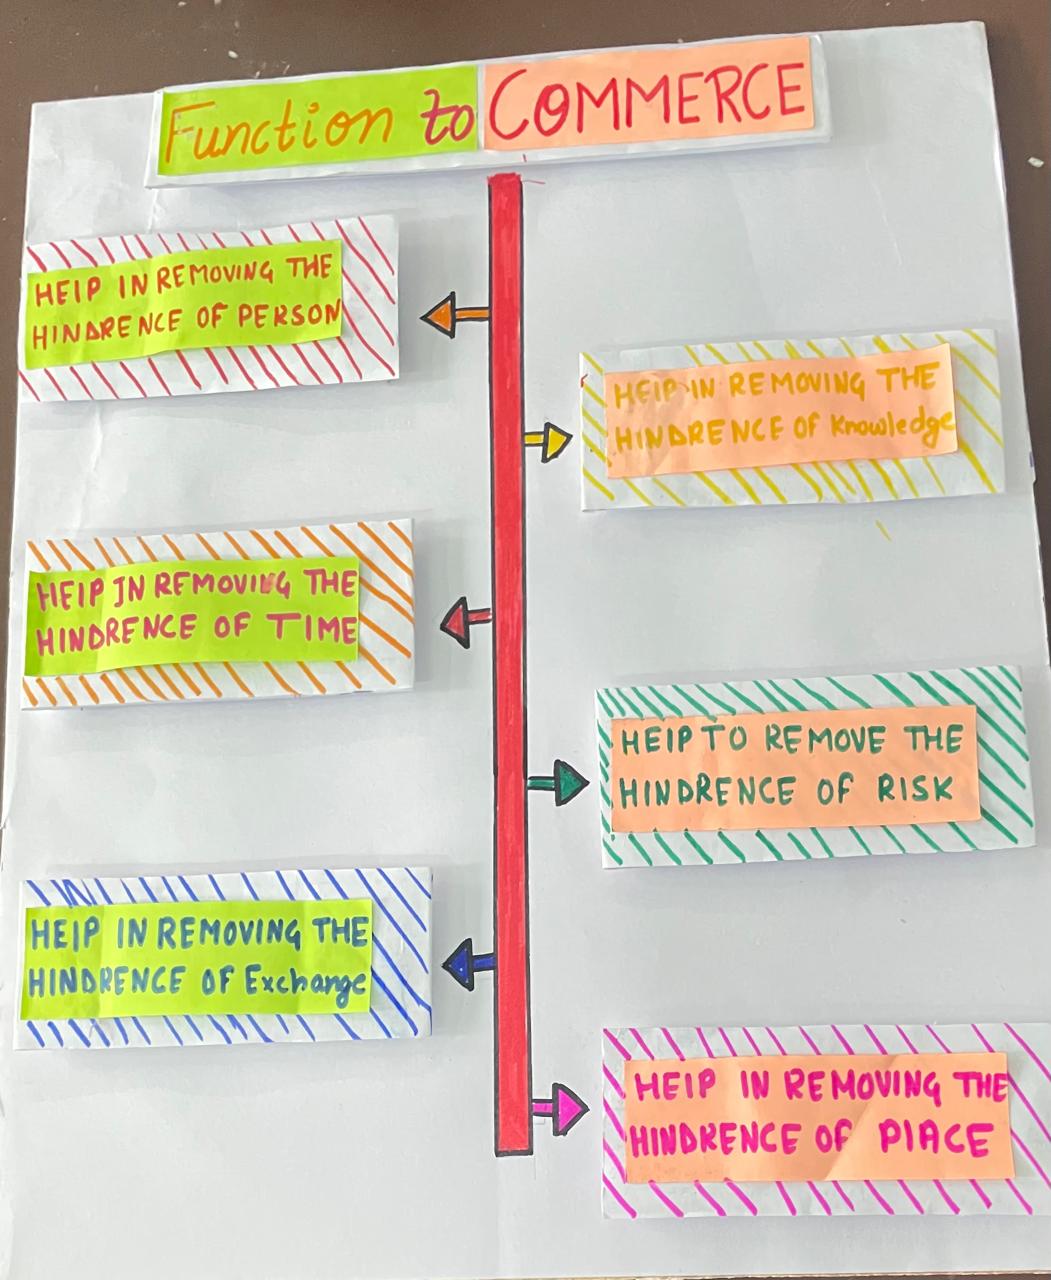 Function to COMMERCE
HElP IN REMOVING THE
HINDRENCE OF PERSON
HElP IN REMOVING THE
HINDRENCE OF Knowledge
HElP IN REMOVING THE
HINDRENCE OF TIME
HElP TO REMOVE THE
HINDRENCE OF RISK
HElP IN REMOVING THE
HINDRENCE OF Exchange
HElP IN REMOVING THE
HINDRENCE OF PlACE